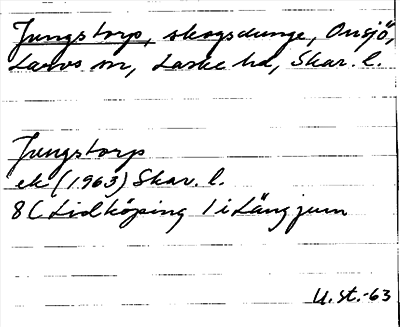 Jungstorp, skogsdunge, Onsjö,
Larvs sn, Laske hd, Skar. l.
Jungstorp
ek (1963) Skar. l.
8C Lidköping 1 i Längjum
U.st.-63